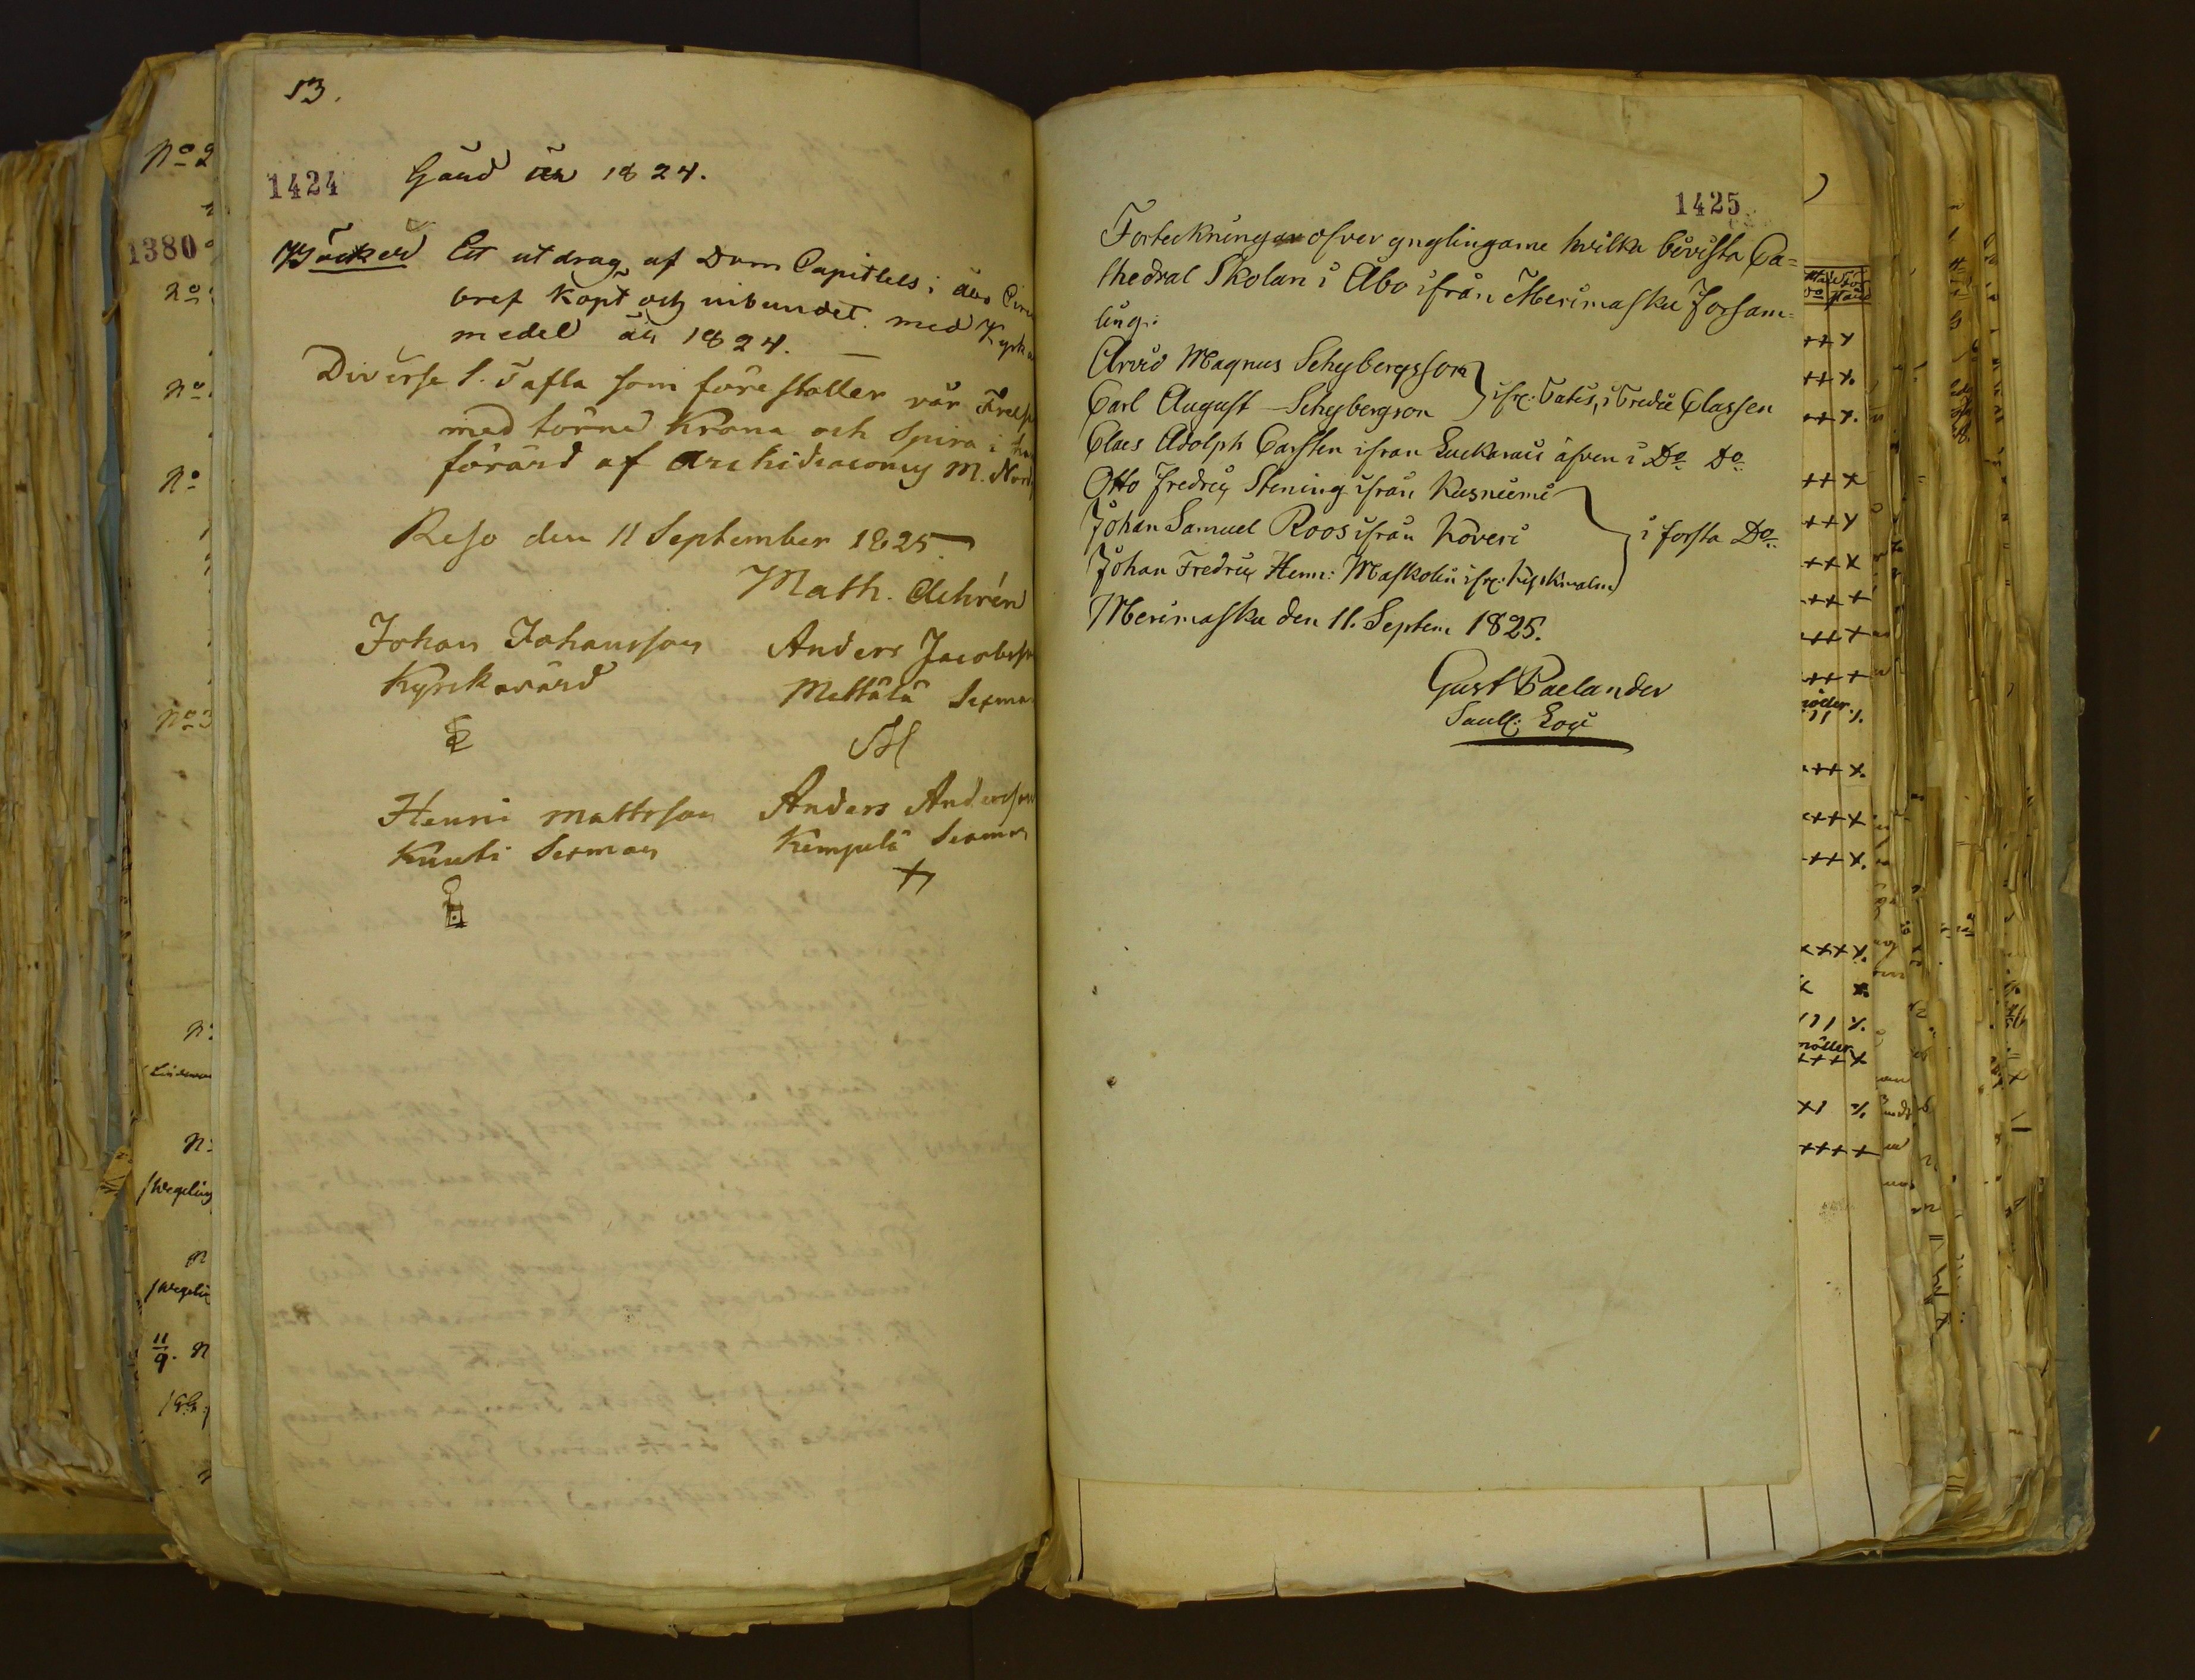 13.
1424
Gånd år 1824.
Böcker Ett utdrag af Dom Capitlets i åbo
bref Köpt och inbundet med Kyrk
medel år 1824.
Diverse 1. Tafla som före ställer vår Frels
med törne Krona och Spira i
förärd af Archidiaconus M. Nord
Reso den 11 September 1825
Math. Achrén
Johan Johansson Anders Jacobss
Kyrckovärd Mettälä Sexma
Henric Mattsson Anders Andersson
Knuuti Sexman Kempilä Sexman
1425
Forteckningar ofver ynglingarne hvilka bevista Ca=
thedral Skolan i Åbo ifrån Merimasku Forsam=
ling:
Arvid Magnus Schybergsson
Carl August Schybergson ifr: Tatis, i Tredie Classen
Claes Adolph Carsten ifran Luckarais äfven i Do Do
Otto Fredric Stening ifrån Kusniemi
Johan Samuel Roos ifrån Höveri i forsta Do
Johan Fredric Henr: Maskolin ifr:
Merimasku den 11. Septem 1825.
Gust Paelander
1380
No 2
No
No
No 3
möller
möller